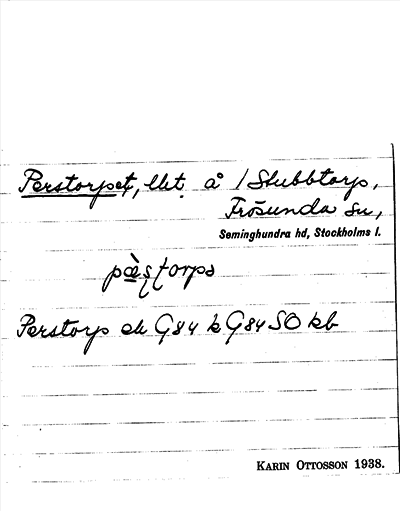 Perstorpet, llet å / Stubbtorp,
Frösunda sn,
Seminghundra hd, Stockholms l.
Perstorp ek G84 k G84 SO kb
KARIN OTTOSSON 1938.